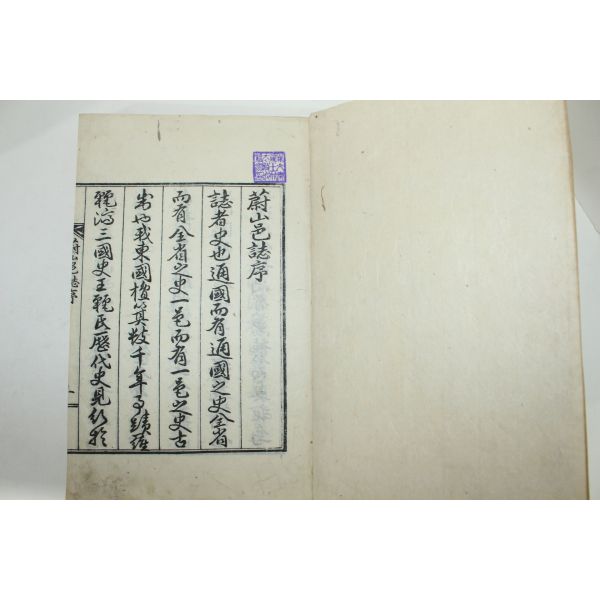 蔚山邑誌序
誌者史也通國而有通國之史全省
而有全省之史一邑而有一邑之史古
也我東國檀箕數千年事蹟羅
麗濟三國史王麗氏歷代史見行於
蔚山邑誌序
一